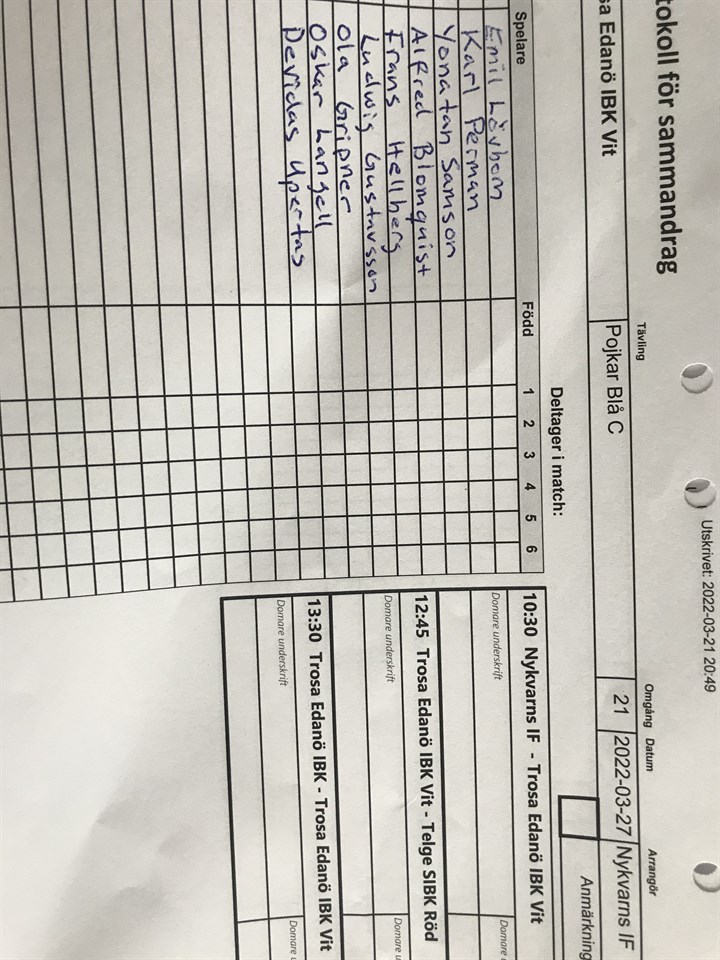 Utskrivet: 2022-03-21 20:49
tokoll för sammandrag
Tävling
Omgång Datum Arrangör
sa Edanö IBK Vit Pojkar Blå C 21 2022-03-27 Nykvarns IF
Anmärkning
Deltager i match:
Spelare Född 1 2 3 4 5 6
Emil Lövbom
Karl Perman
Yonatan Samson
Alfred Blomquist
Frans Hellberg
Ludwig Gustavsson
Ola Gripner
Oskar Langell
Devidas Upertas
10:30 Nykvarns IF - Trosa Edanö IBK Vit
Domare underskrift Domare
12:45 Trosa Edanö IBK Vit - Telge SIBK Röd
Domare underskrift Domare u
13:30 Trosa Edanö IBK - Trosa Edanö IBK Vit
Domare underskrift Domare u